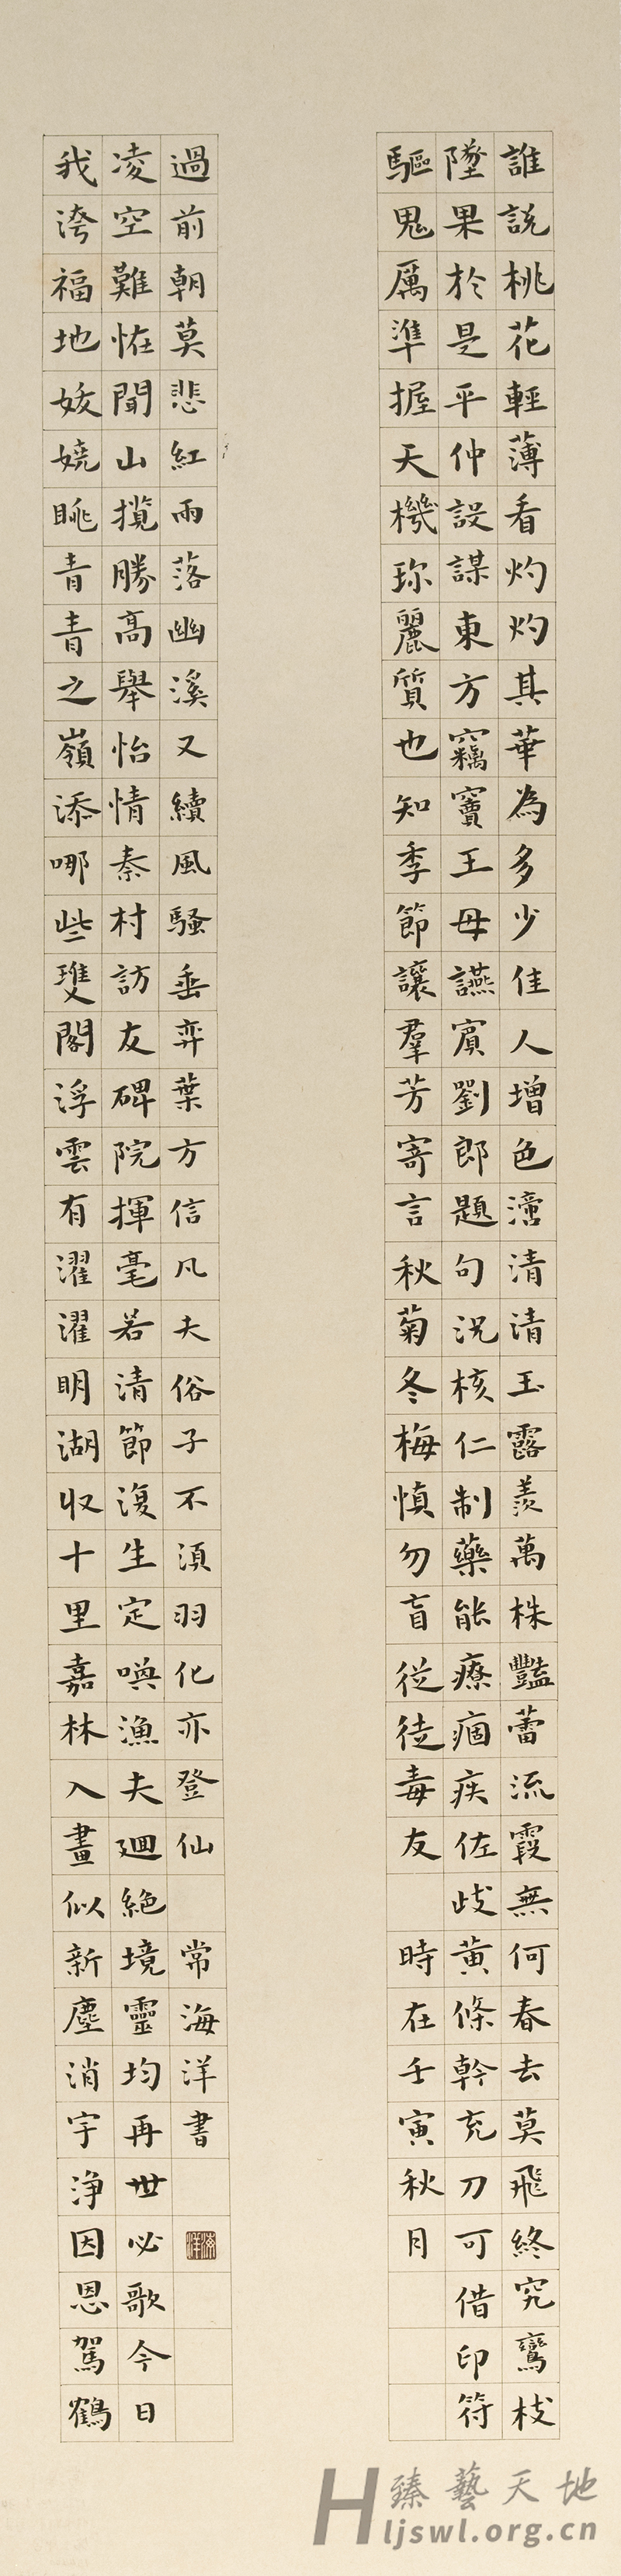 誰説桃花輕薄看灼灼其華為多少佳人增色瀅清清玉露羨萬株豔蕾流霞無何春去莫飛終究鸞枝
墜果於是平仲設謀東方竊竇王母讌賓劉郎題句況核仁制藥能療痼疾佐歧黃條幹充刀可借印符
驅鬼厲準握天機珎麗質也知季節讓羣芳寄言秋菊冬梅慎勿盲從徒毒友 時在壬寅秋月
我誇福地妭嬈眺青青之嶺添哪些雙閣浮雲有濯濯明湖收十里嘉林入畫似新塵消宇淨因恩駕鶴
凌空難恠聞山攬勝高舉怡情秦村訪友碑院揮毫若清節復生定喚漁夫迴絕境靈均再世必歌今日
過前朝莫悲紅雨落幽溪又續風騷垂弈葉方信凡夫俗子不須羽化亦登仙 常海洋書
臻藝天地
Hljswl.org.cn